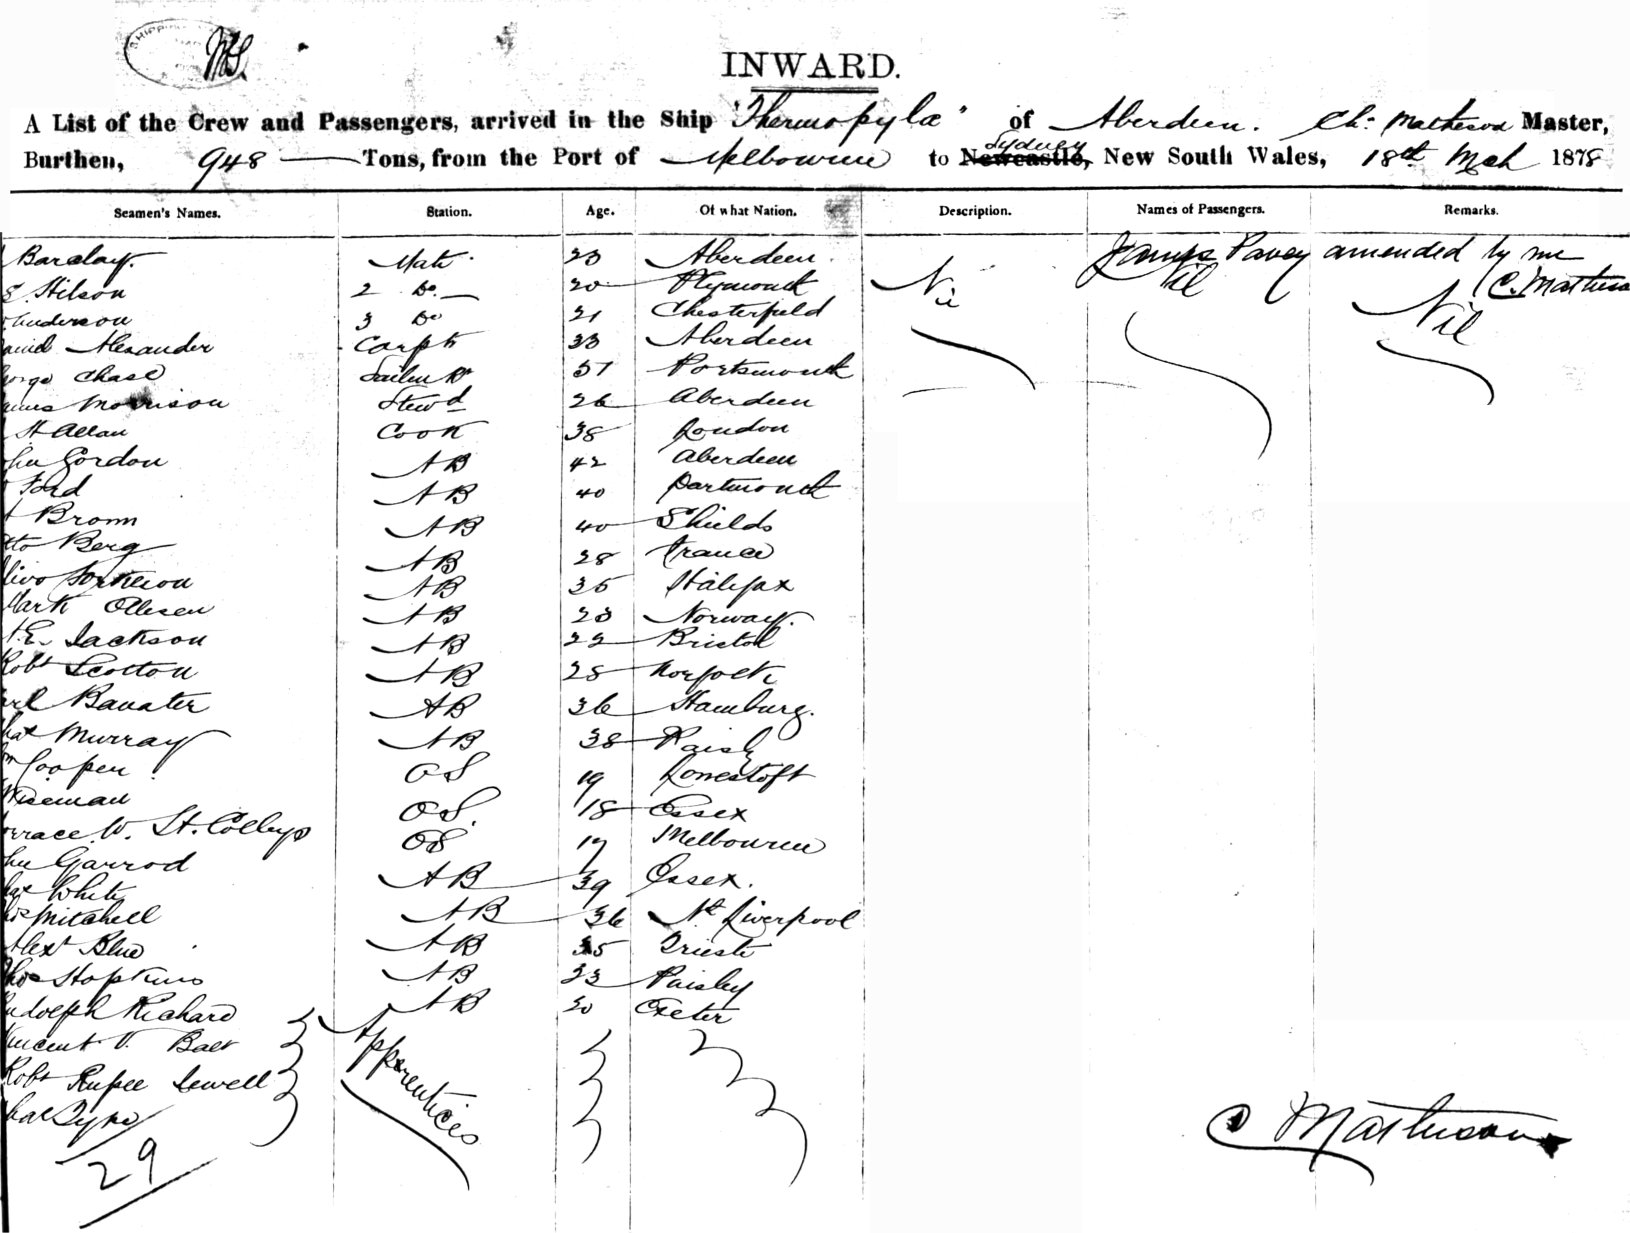 INWARD.
A List of the Crew and Passengers, arrived in the Ship "Thermopylæ" of Aberdeen. Master,
Sydney
Burthen, 948 Tons, from the Port of Melbourne to Newcastle, New South Wales, 18th Mch 1878
Seamen's Names. Station. Age. Of what Nation. Description. Names of Passengers. Remarks.
Barclay. Mate Aberdeen. James Pavey amended by me
Hilson 2 Do. 20 Plymouth Nil Nil C. Mathieson
Henderson 3 Do 21 Chesterfield Nil
Alexander Carptr 33 Aberdeen
Chase 57 Portsmouth
Morrison Stewd 26 Aberdeen
Allan Cook 38 London
Gordon AB 42 Aberdeen
Ford AB 40 Dartmouth
Brown AB 40 Shields
Berg AB 28 France
AB 35 Halifax
Mark Ollesen AB 23 Norway.
Jackson AB 22 Bristol
Robt Scotton AB 28 Norfolk
AB 36 Hamburg.
Murray AB 38 Paisly
Cooper OS 19 Lowestoft
Wiseman OS. 18 Essex
W. St. OS 19 Melbourne
Garrod AB 39 Essex.
White
Mitchell AB 36 Nr Liverpool
Alexr Blue AB 35 Trieste
Thos Hopkins AB 33 Paisley
Rudolph Richard AB 20 Exeter
Vincent V. Apprentices
Robt Sewell
29
C Mathieson